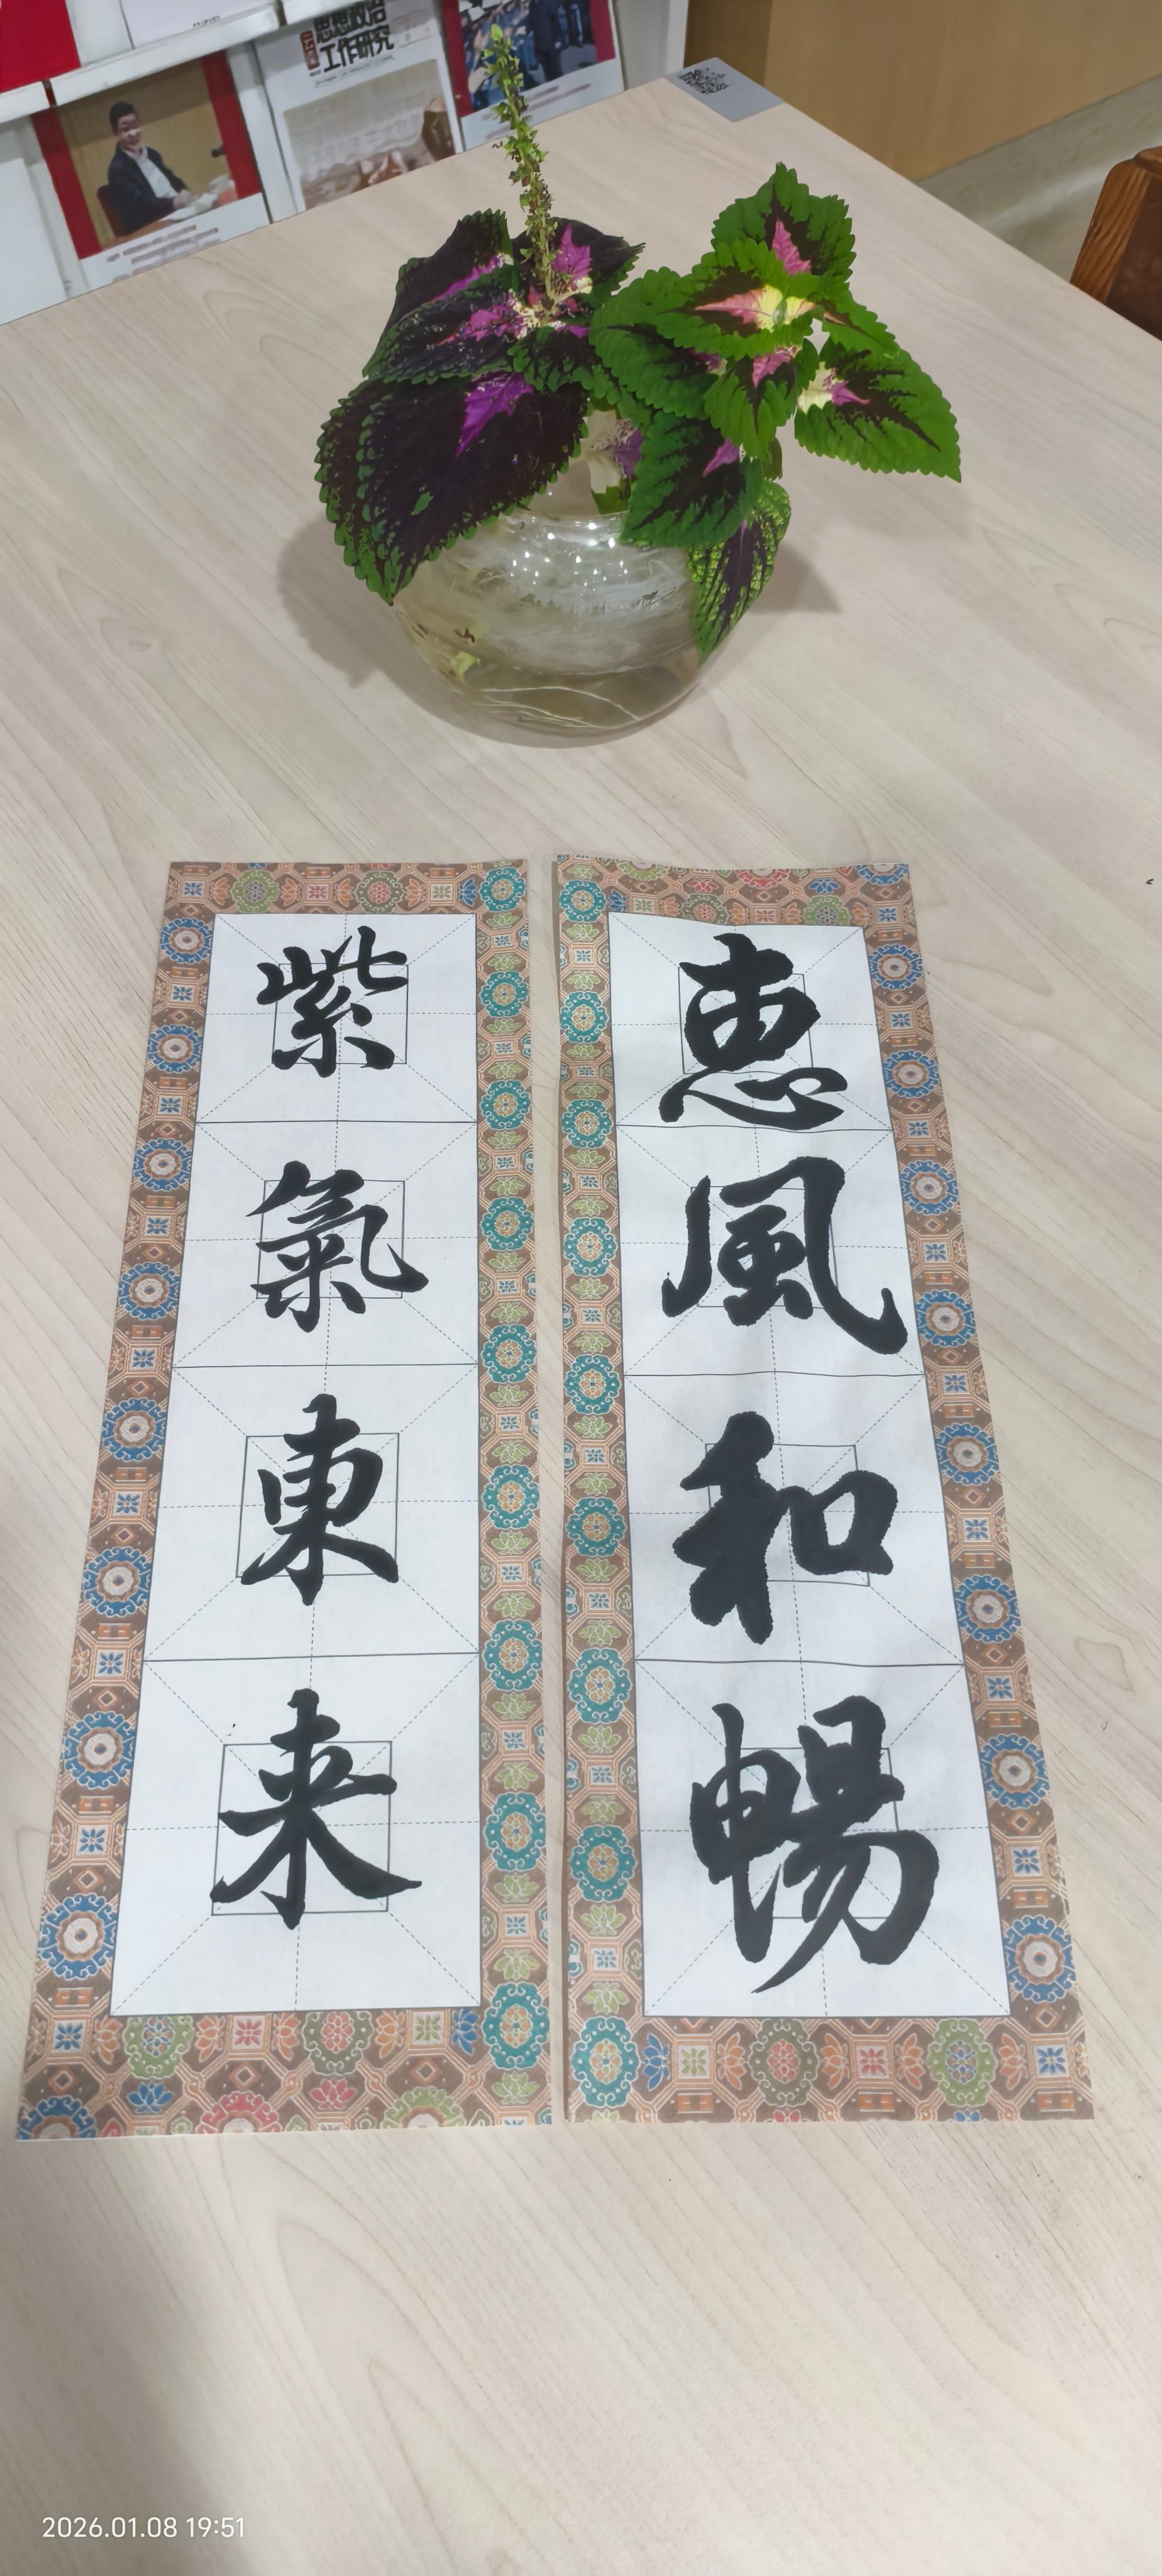 思想政治
工作研究
惠風和暢
紫氣東来
2026.01.08 19:51